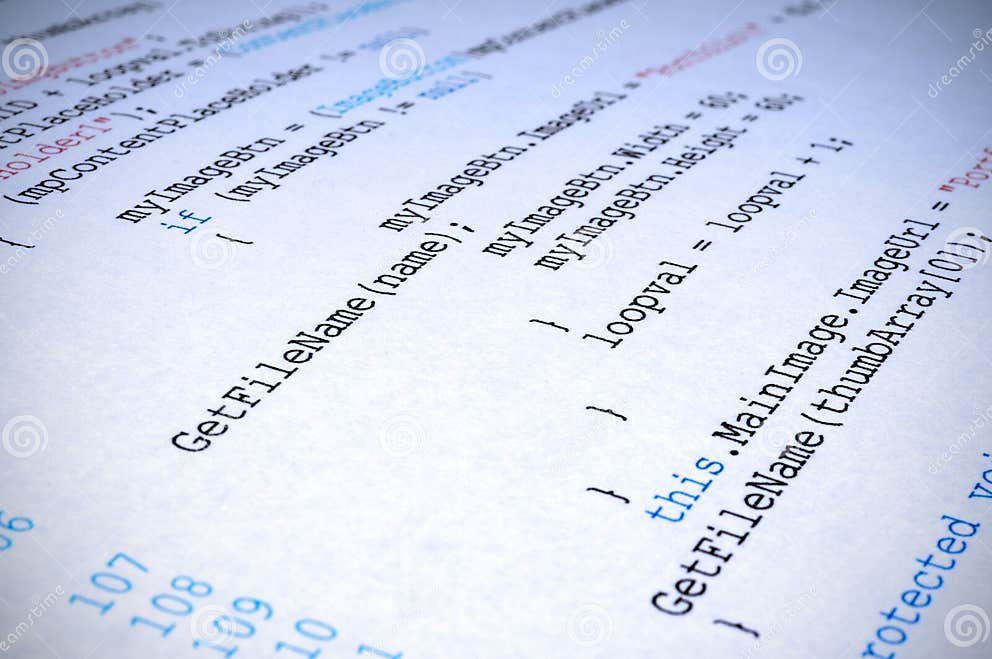 ID + loopval.
tPlaceHolder = (
Holder1" );
(mpContentPlaceHolder != null)
{
myImageBtn = (ImageButton)
if (myImageBtn != null)
{
myImageBtn.ImageUrl =
GetFileName(name);
myImageBtn.Width = 60;
myImageBtn.Height = 60;
}
loopval = loopval + 1;
}
}
this.MainImage.ImageUrl = "Portf
GetFileName(thumbArray[0]);
}
rotected voi
06
107
108
109
10
dreamstime